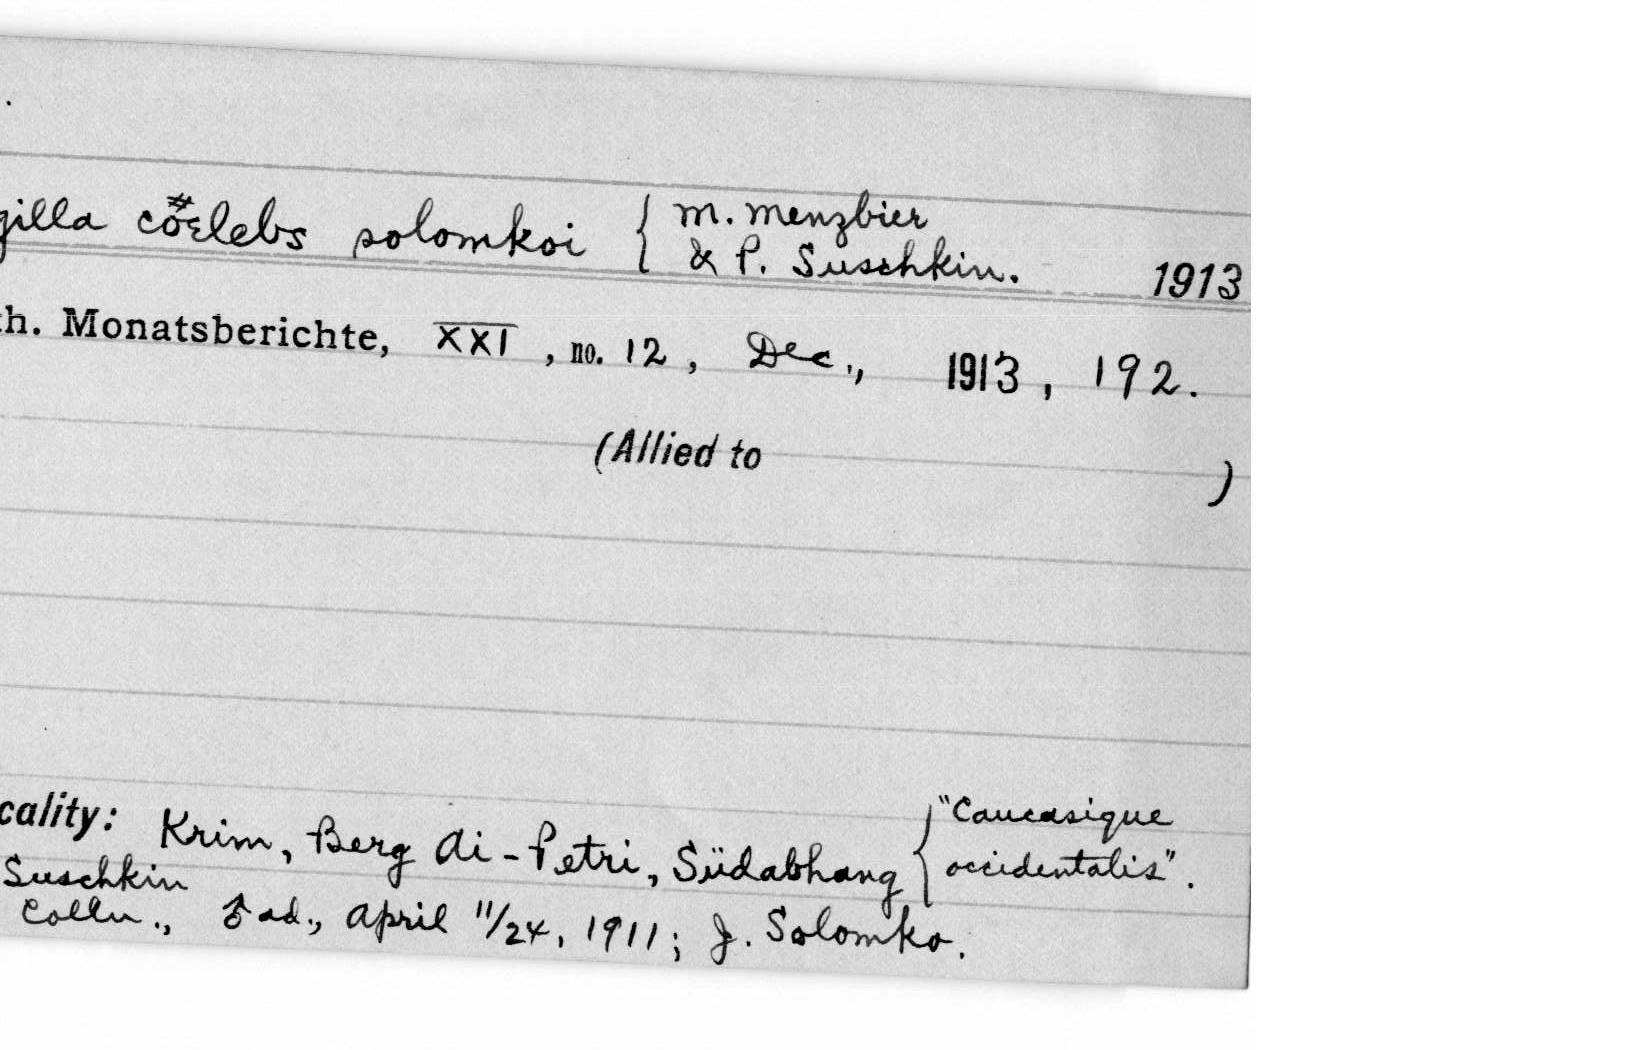 gilla cöelebs solomkoi { M. Menzbier
& P. Suschkin. 1913
th. Monatsberichte, XXI, no. 12, Dec., 1913, 192.
(Allied to )
cality: Krim, Berg Ai-Petri, Südabhang { "Caucasique
occidentalis".
Suschkin
Colln., ♂ ad., April 11/24, 1911; J. Solomko.